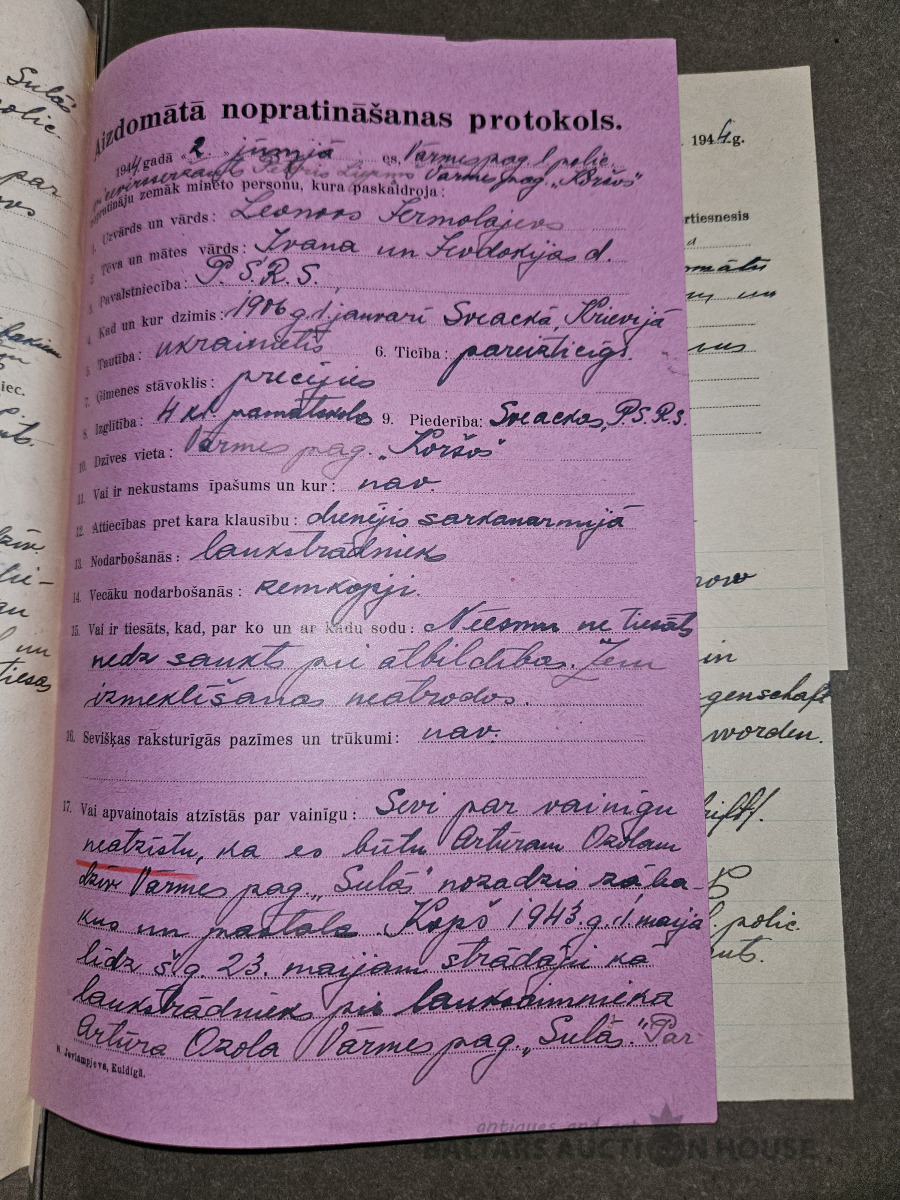 Aizdomātā nopratināšanas protokols.
1944 gadā „2. „ jūnijā es, Vārmes pag. 1 polic.
Vārmes pag. „Koršos“
nopratināju zemāk minēto personu, kura paskaidroja:
1. Uzvārds un vārds: Leonovs Jermolajevs
2. Tēva un mātes vārds: Ivana un Fevdokijas d.
3. Pavalstniecība: P.S.R.S.
4. Kad un kur dzimis: 1906 g. 1. janvarī Sveackā, Krievijā
5. Tautība: ukrainietis 6. Ticība: pareizticīgs.
7. Ģimenes stāvoklis: precējies
8. Izglītība: 4 kl. pamatskola 9. Piederība: Sveackas, P.S.R.S.
10. Dzīves vieta: Vārmes pag. „Koršos“
11. Vai ir nekustams īpašums un kur: nav.
12. Attiecības pret kara klausību: dienējis sarkanarmijā
13. Nodarbošanās: laukstrādnieks
14. Vecāku nodarbošanās: zemkopji.
15. Vai ir tiesāts, kad, par ko un ar kādu sodu: Neesmu ne tiesāts
nedz saukts pie atbildības. Zem
izmeklēšanas neatrodos.
16. Sevišķas raksturīgās pazīmes un trūkumi: nav.
17. Vai apvainotais atzīstās par vainīgu: Sevi par vainīgu
neatzīstu, ka es būtu Artūram Ozolam
dzīv. Vārmes pag. „Sulās“ nozadzis zāba-
kus un pastalas. Kopš 1943.g. 1. maija
līdz š.g. 23. maijam strādāju kā
laukstrādnieks pie lauksaimnieka
Artūra Ozola Vārmes pag. „Sulās.“ Par
N. Jevlampjeva, Kuldīgā.
Sulās
polic.
par
iec.
dzīv.
un
tiesas
1944.g.
rtiesnesis
in
genschaft
worden.
polic.
antiques and art
BALTARS AUCTION HOUSE